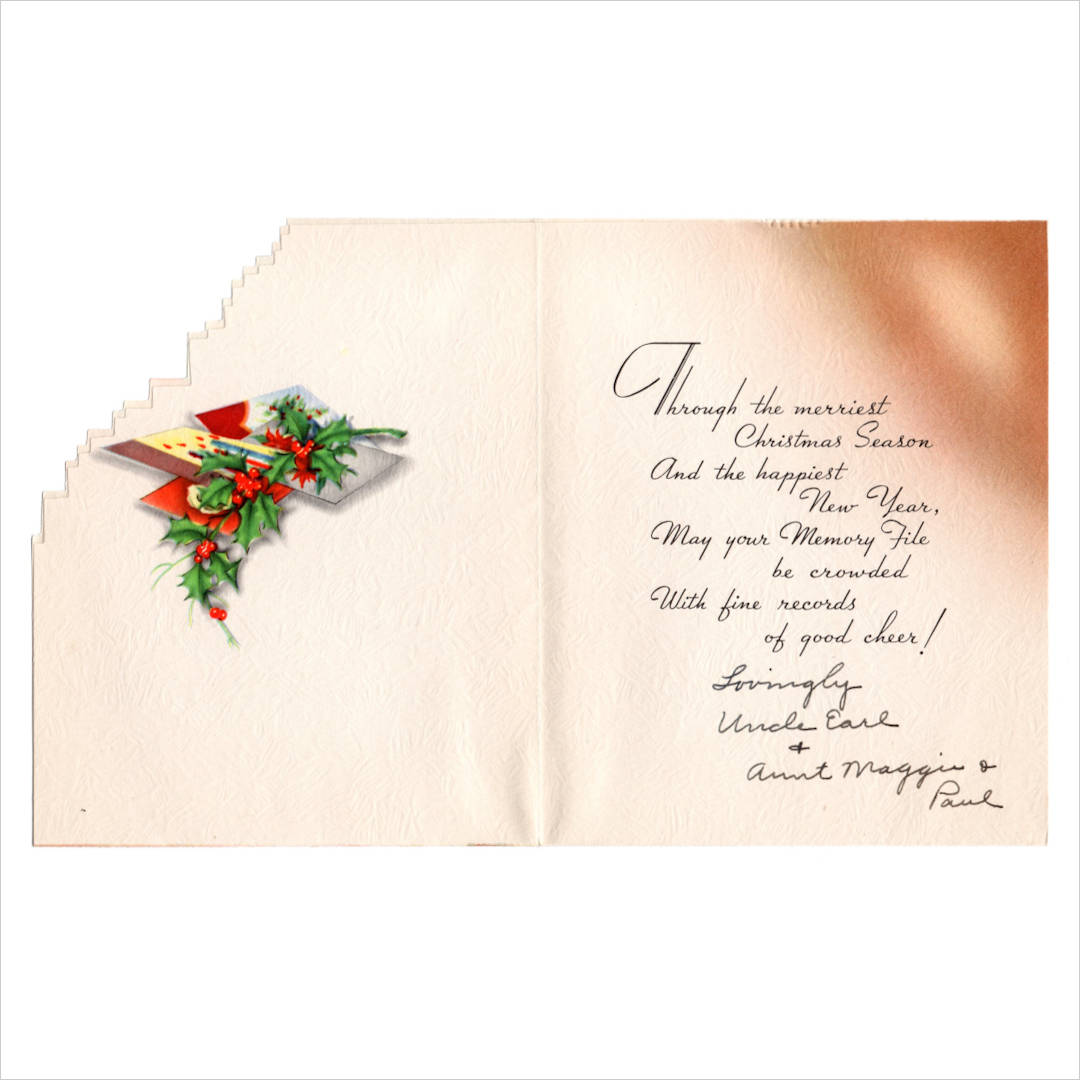 Through the merriest
Christmas Season
And the happiest
New Year,
May your Memory File
be crowded
With fine records
of good cheer!
Lovingly
Uncle Earl
&
Aunt Maggie &
Paul